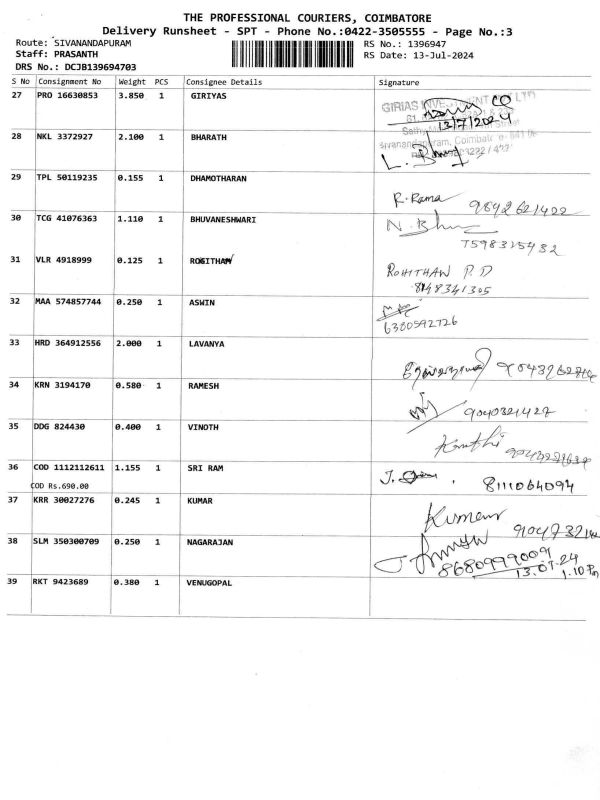 THE PROFESSIONAL COURIERS, COIMBATORE
Delivery Runsheet - SPT - Phone No.:0422-3505555 - Page No.:3
Route: SIVANANDAPURAM RS No.: 1396947
Staff: PRASANTH RS Date: 13-Jul-2024
DRS No.: DCJB139694703
S No Consignment No Weight PCS Consignee Details Signature
27 PRO 16630853 3.850 1 GIRIYAS
GIRIAS
13/7/2024
28 NKL 3372927 2.100 1 BHARATH
29 TPL 50119235 0.155 1 DHAMOTHARAN
R. Rama 9842621422
30 TCG 41076363 1.110 1 BHUVANESHWARI
7598325432
31 VLR 4918999 0.125 1 ROHITHAN
ROHITHAW P.D
8148341305
32 MAA 574857744 0.250 1 ASWIN
6380592726
33 HRD 364912556 2.000 1 LAVANYA
34 KRN 3194170 0.580 1 RAMESH
9040321427
35 DDG 824430 0.400 1 VINOTH
36 COD 1112112611 1.155 1 SRI RAM
COD Rs.690.00
8111064094
37 KRR 30027276 0.245 1 KUMAR
Kumar
38 SLM 350300709 0.250 1 NAGARAJAN
8680999009
13.07.24
1.10 Pm
39 RKT 9423689 0.380 1 VENUGOPAL